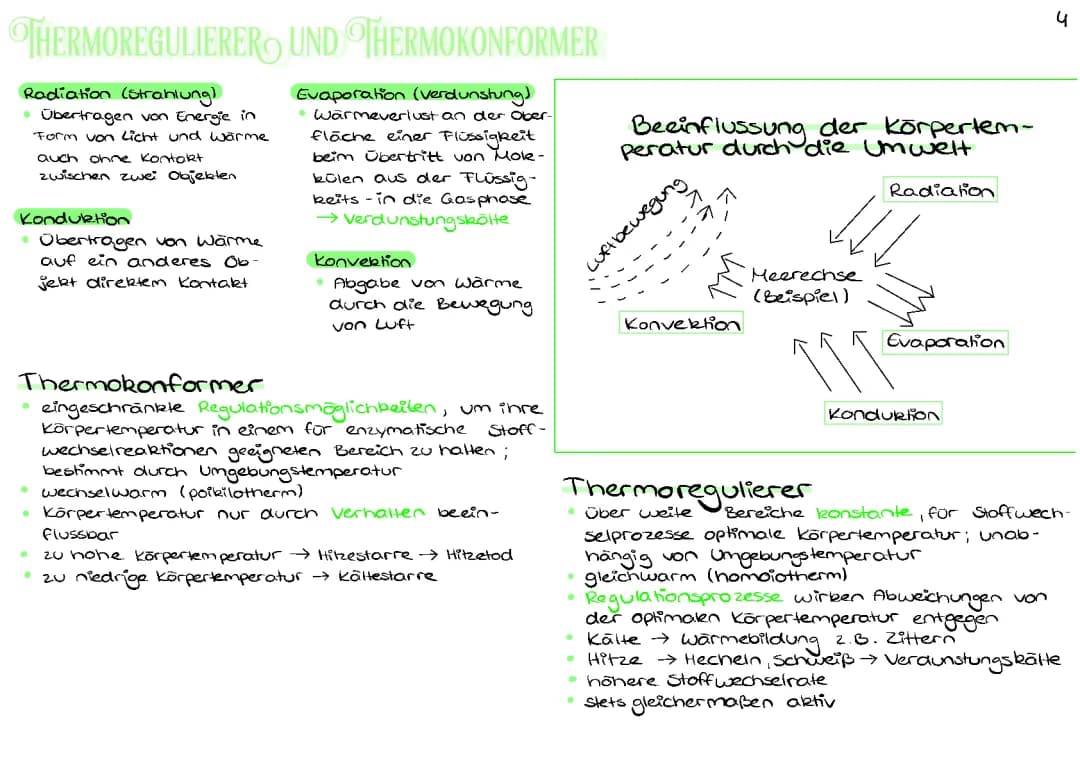 4
THERMOREGULIERER UND THERMOKONFORMER
Radiation (Strahlung)
• Übertragen von Energie in
Form von Licht und Wärme
auch ohne Kontakt
zwischen zwei Objekten
Konduktion
• Übertragen von Wärme
auf ein anderes Ob-
jekt direktem Kontakt
Evaporation (Verdunstung)
• Wärmeverlust an der Ober-
fläche einer Flüssigkeit
beim Übertritt von Mole-
külen aus der Flüssig-
keits - in die Gasphase
→ Verdunstungskälte
Konvektion
• Abgabe von Wärme
durch die Bewegung
von Luft
Beeinflussung der Körpertem-
peratur durch die Umwelt
Radiation
Luftbewegung
Meerechse
(Beispiel)
Konvektion
Evaporation
Konduktion
Thermokonformer
• eingeschränkte Regulationsmöglichkeiten, um ihre
Körpertemperatur in einem für enzymatische Stoff-
wechselreaktionen geeigneten Bereich zu halten;
bestimmt durch Umgebungstemperatur
• wechselwarm (poikilotherm)
• Körpertemperatur nur durch Verhalten beein-
flussbar
• zu hohe Körpertemperatur → Hitzestarre → Hitzetod
• zu niedrige Körpertemperatur → Kältestarre
Thermoregulierer
• über weite Bereiche konstante, für Stoffwech-
selprozesse optimale Körpertemperatur; unab-
hängig von Umgebungstemperatur
• gleichwarm (homoiotherm)
• Regulationsprozesse wirken Abweichungen von
der optimalen Körpertemperatur entgegen
• Kälte → Wärmebildung z.B. Zittern
• Hitze → Hecheln, Schweiß → Verdunstungskälte
• höhere Stoffwechselrate
• stets gleichermaßen aktiv